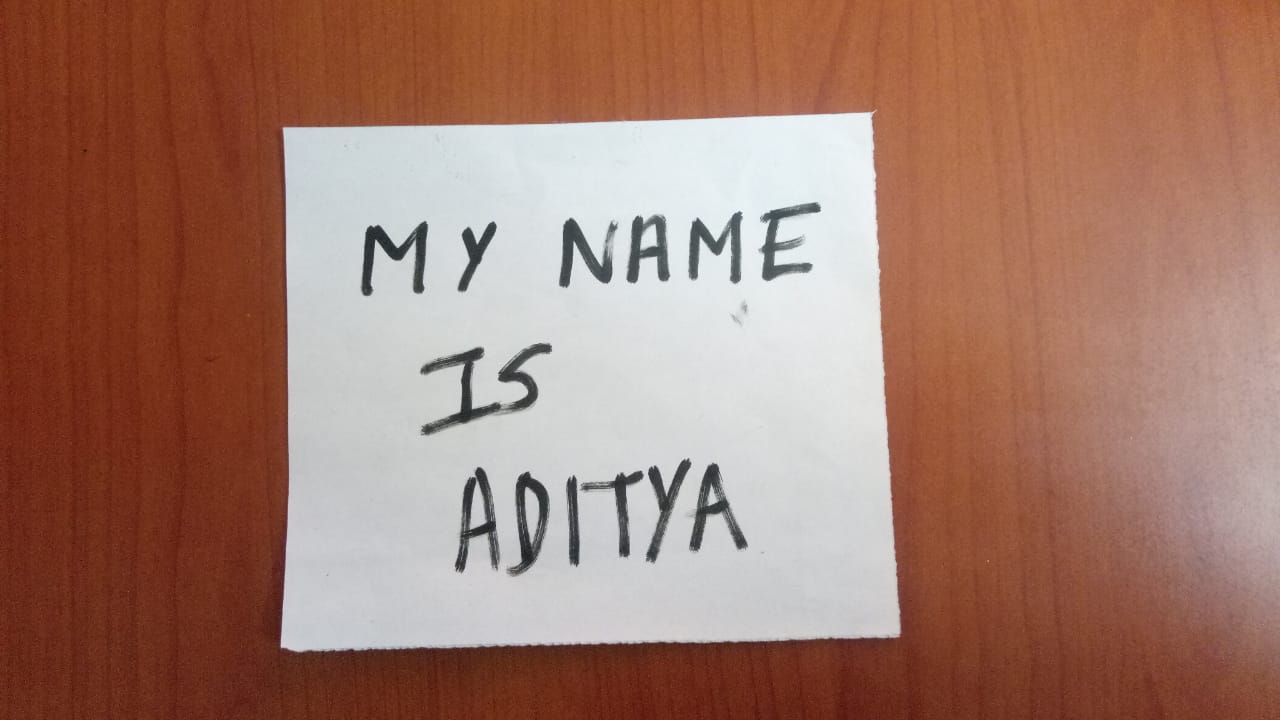 MY NAME
IS
ADITYA